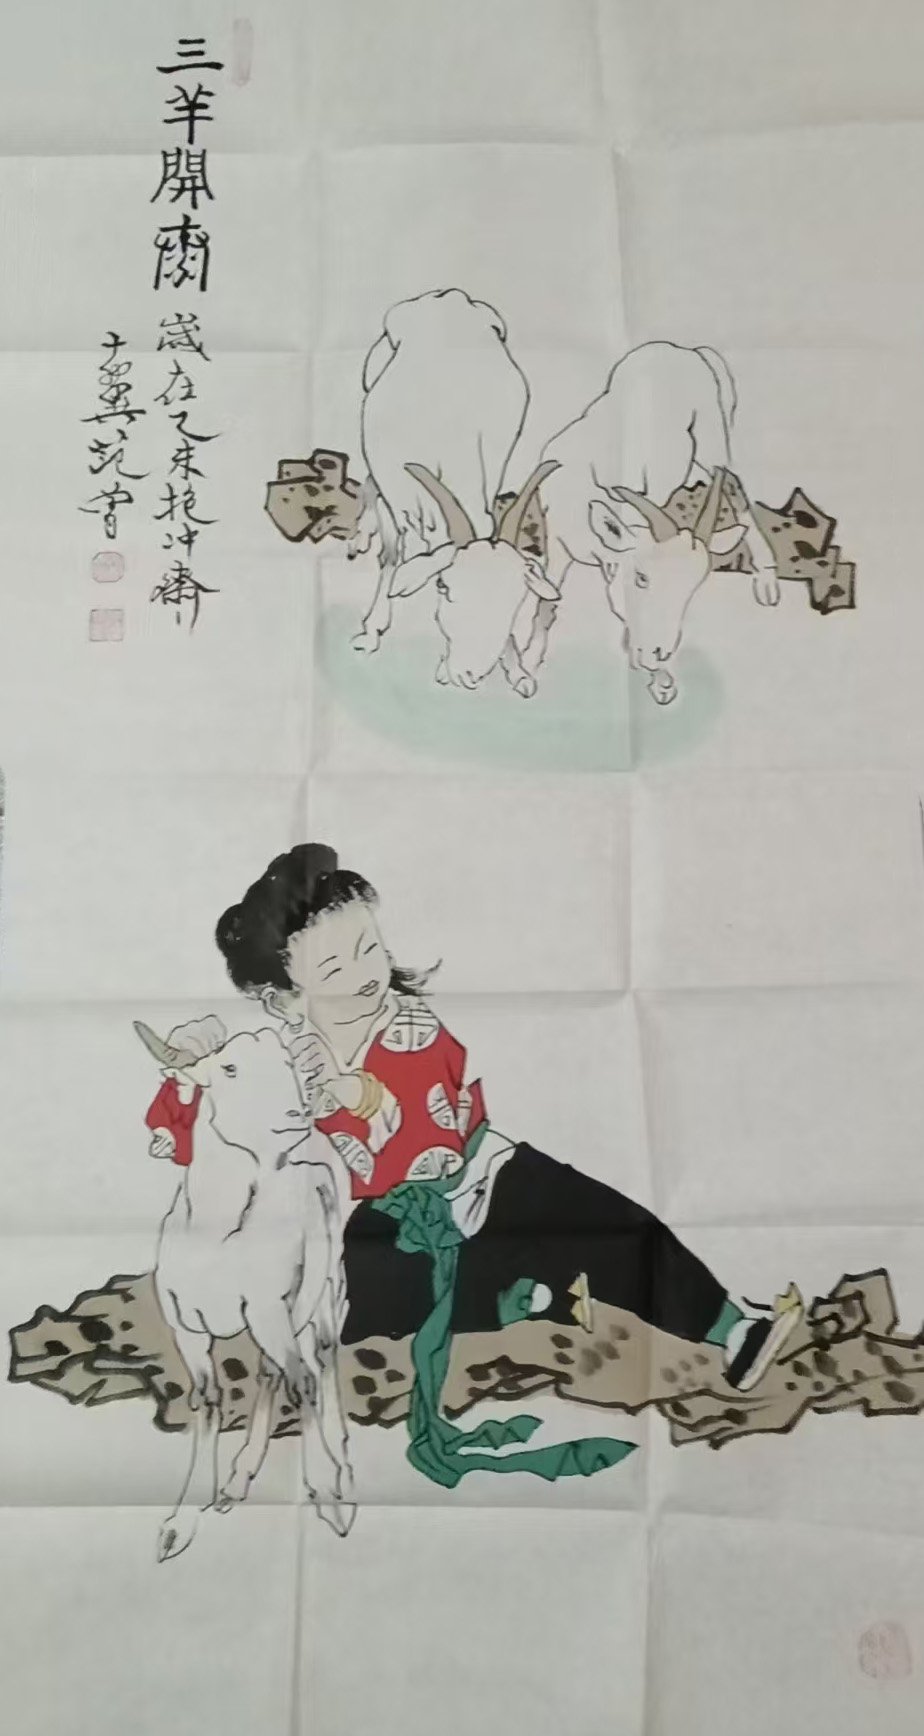 三羊開 歲在乙未抱冲齋
十翼范曾